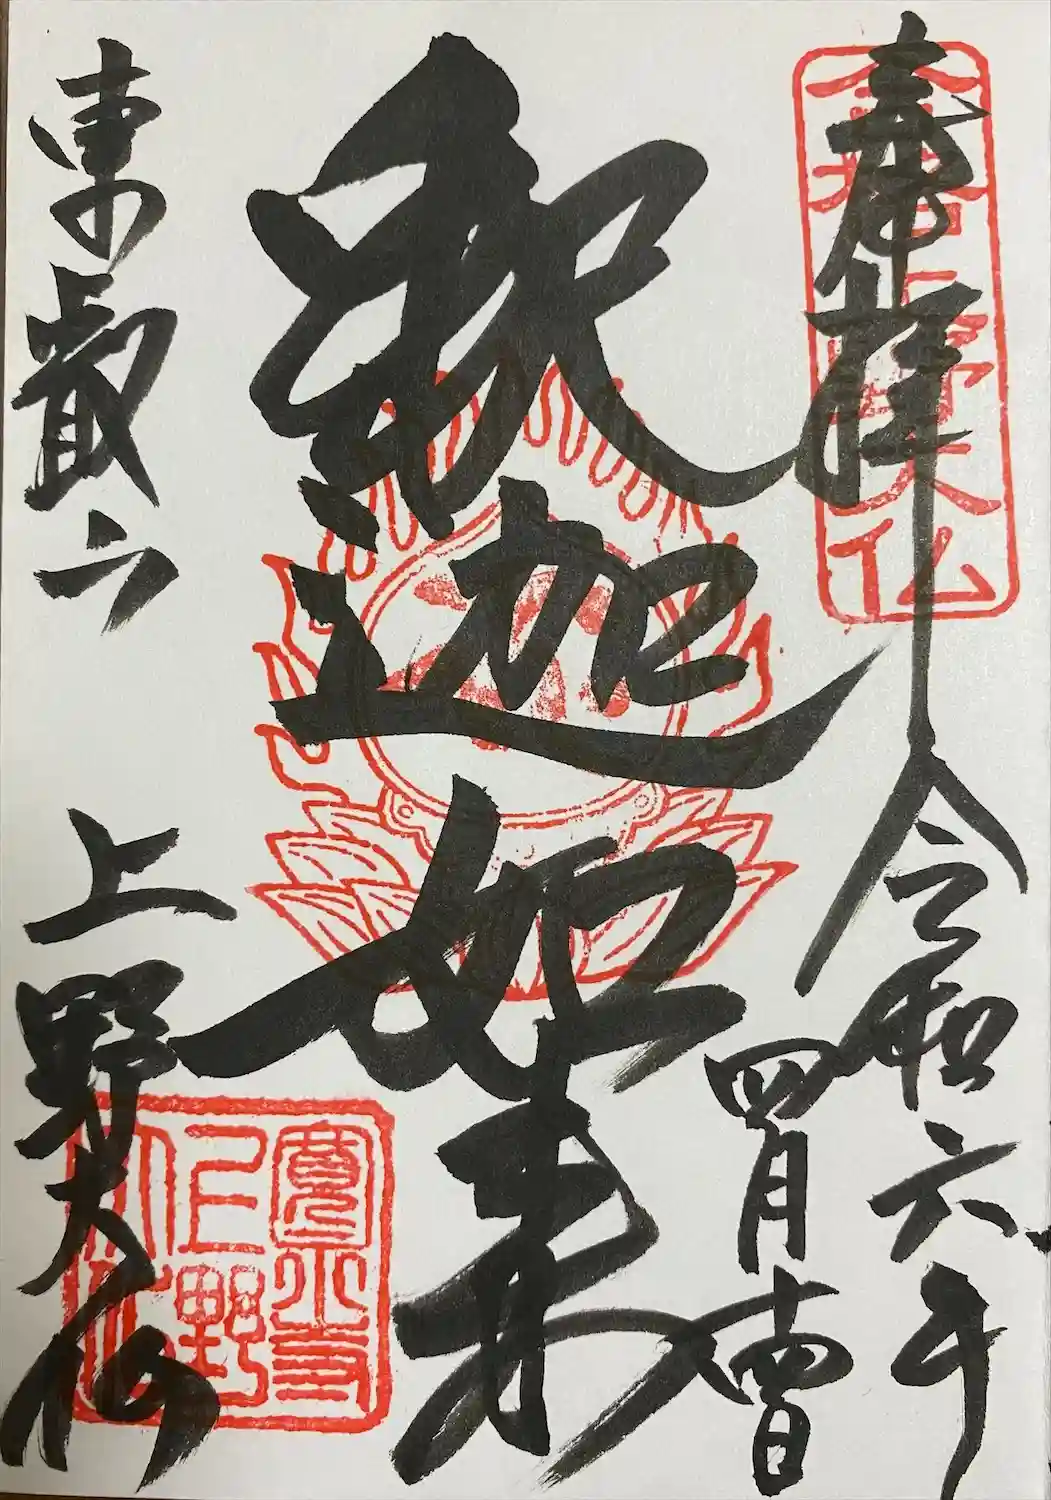 奉拝 令和六年
四月十四日
合格上野大仏
釈迦如来
東叡山 上野大仏
寛永寺
上野
大仏